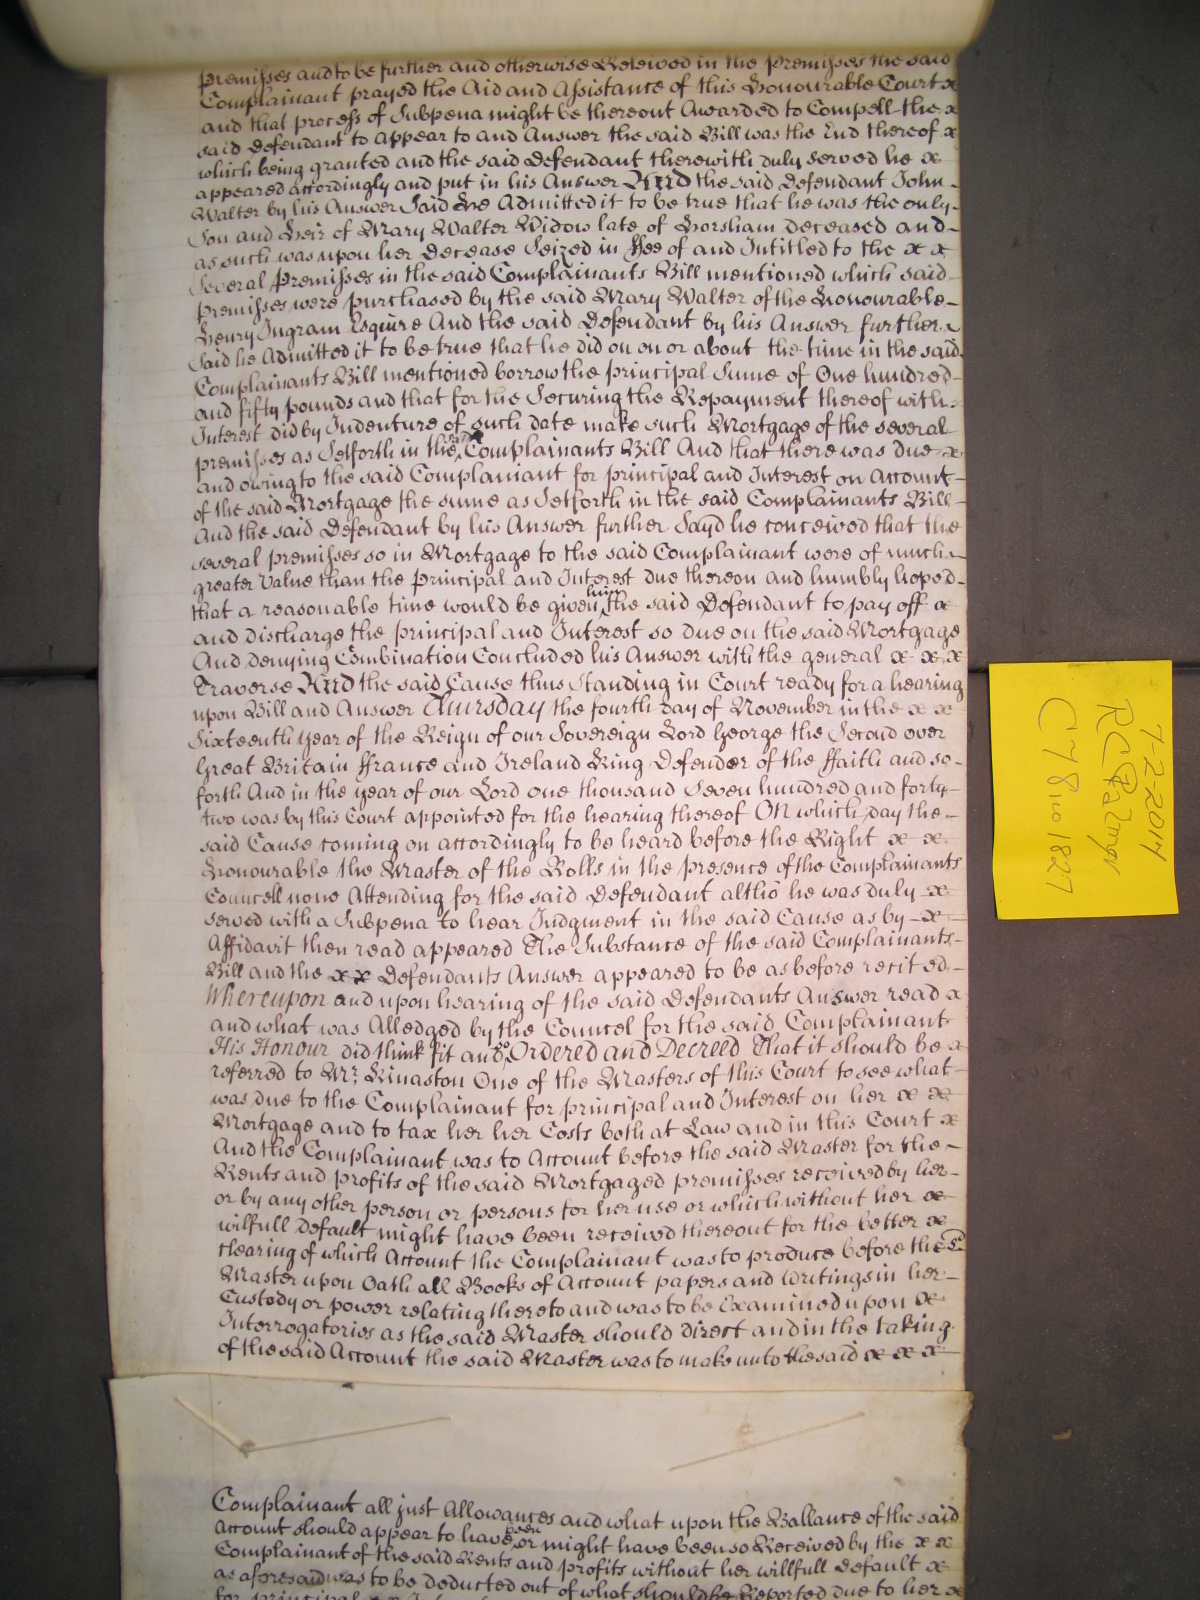 premisses and to be further and otherwise Releived in the premisses the said
Complainant prayed the Aid and Assistance of this Honourable Court x
and that process of Subpena might be thereout Awarded to Compell the x
said Defendant to appear to and Answer the said Bill was the End thereof x
which being granted and the said Defendant therewith duly served he x
appeared accordingly and put in his Answer And the said Defendant John
Walter by his Answer Said he Admitted it to be true that he was the only
Son and Heir of Mary Walter Widow late of Horsham deceased and
as such was upon her decease Seized in ffee of and Intitled to the x x
Several Premisses in the said Complainants Bill mentioned which said
premisses were purchased by the said Mary Walter of the Honourable
Henry Ingram Esquire And the said Defendant by his Answer further
Said he Admitted it to be true that he did on on or about the time in the said
Complainants Bill mentioned borrow the principal Sume of One hundred
and fifty pounds and that for the Securing the Repayment thereof with
Interest did by Indenture of such date make such Mortgage of the several
premisses as Setforth in the said Complainants Bill And that there was due x
and owing to the said Complainant for principal and Interest on Account
of the said Mortgage the sume as Setforth in the said Complainants Bill
And the said Defendant by his Answer further Sayd he conceived that the
several premisses so in Mortgage to the said Complainant were of much
greater Value than the principal and Interest due thereon and humbly hoped
that a reasonable time would be given him the said Defendant to pay off x
and discharge the principal and Interest so due on the said Mortgage
And denying Combination Concluded his Answer with the general x x x
Traverse And the said Cause thus Standing in Court ready for a hearing
upon Bill and Answer Thursday the fourth day of November in the x x
Sixteenth year of the Reign of our Sovereign Lord George the Second over
Great Britain ffrance and Ireland King Defender of the ffaith and so
forth And in the year of our Lord one thousand Seven hundred and forty
two was by this Court appointed for the hearing thereof ON which day the
said Cause coming on accordingly to be heard before the Right x x
Honourable the Master of the Rolls in the presence of the Complainants
Councell none Attending for the said Defendant altho he was duly x
served with a Subpena to hear Judgment in the said Cause as by x
Affidavit then read appeared The Substance of the said Complainants
Bill and the x x Defendants Answer appeared to be as before recited
Whereupon and upon hearing of the said Defendants Answer read x
and what was Alledged by the Councel for the said Complainant
His Honour did think fit and so Ordered and Decreed That it should be x
referred to Mr. Kinaston One of the Masters of this Court to see what
was due to the Complainant for principal and Interest on her x x
Mortgage and to tax her her Costs both at Law and in this Court x
And the Complainant was to Account before the said Master for the
Rents and profits of the said Mortgaged premisses received by her
or by any other person or persons for her use or which without her x
wilfull Default might have been received thereout for the better x
clearing of which Account the Complainant was to produce before the sd
Master upon Oath all Books of Account papers and Writings in her
Custody or power relating thereto and was to be Examined upon x
Interrogatories as the said Master should direct and in the taking
of the said Account the said Master was to make unto the said x x x
Complainant all just Allowances and what upon the Ballance of the said
Account should appear to have been or might have been so Received by the x x
Complainant of the said Rents and profits without her willfull Default x
as aforesaid was to be deducted out of what should be Reported due to her x
for principal
7-2-2014
C78 no 1827